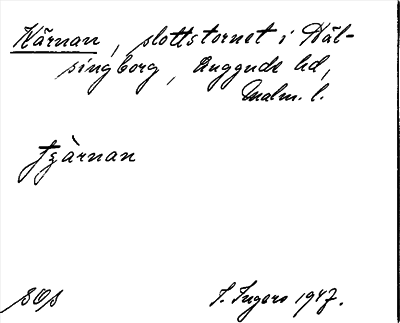 Kärnan, slottstornet i Häl-
singborg, Luggude hd,
Malm. l.
tʒä̀rnan
SOs
I. Ingers 1947.